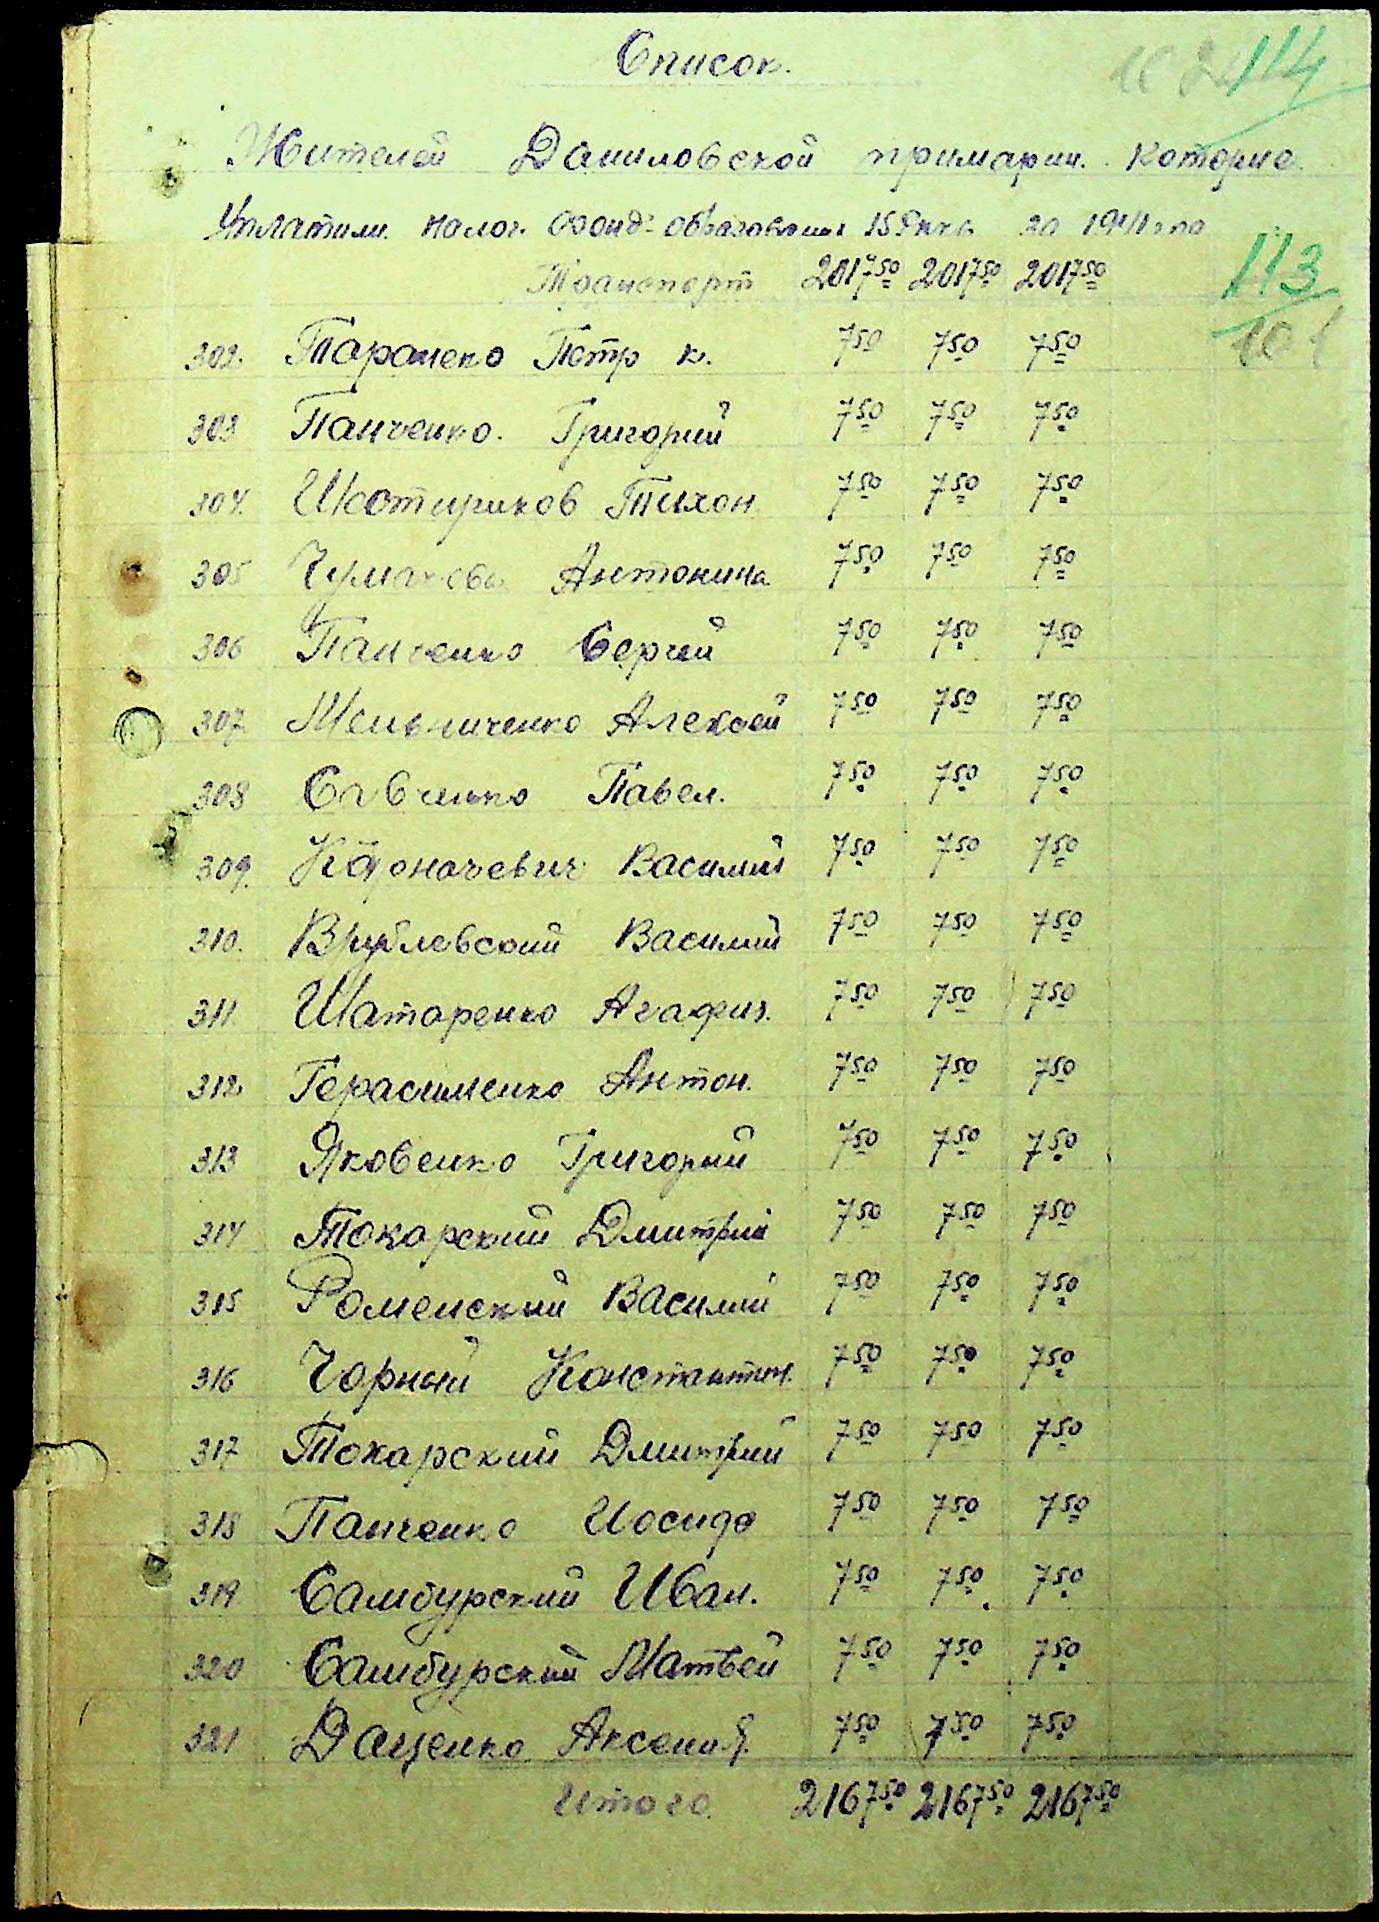 Список.
114
Жителей Даниловской примарии. Которые
Уплатили. налог. Фонд образования 15 за 1941 года
113
101
Транспорт 2017 50 2017 50 2017 50
302. Таранеко Петр К. 7 50 7 50 7 50
303 Панченко. Григорий 7 50 7 50 7 50
304. Тихон 7 50 7 50 7 50
305 Антонина 7 50 7 50 7 50
306 Панченко Сергий 7 50 7 50 7 50
307 Мельниченко Алексей 7 50 7 50 7 50
308 Савченко Павел. 7 50 7 50 7 50
309. Василий 7 50 7 50 7 50
310. Врублевский Василий 7 50 7 50 7 50
311 Шатаренко Агафия. 7 50 7 50 7 50
312 Герасименко Антон. 7 50 7 50 7 50
313 Яковенко Григорий 7 50 7 50 7 50
314 Токарский Дмитрий 7 50 7 50 7 50
315 Роменский Василий 7 50 7 50 7 50
316 Чорный Константин. 7 50 7 50 7 50
317 Токарский Дмитрий 7 50 7 50 7 50
318 Панченко Иосиф 7 50 7 50 7 50
319 Самбурский Иван. 7 50 7 50 7 50
320 Самбурский Матвей 7 50 7 50 7 50
321 Даценко Аксения. 7 50 7 50 7 50
Итого. 2167 50 2167 50 2167 50